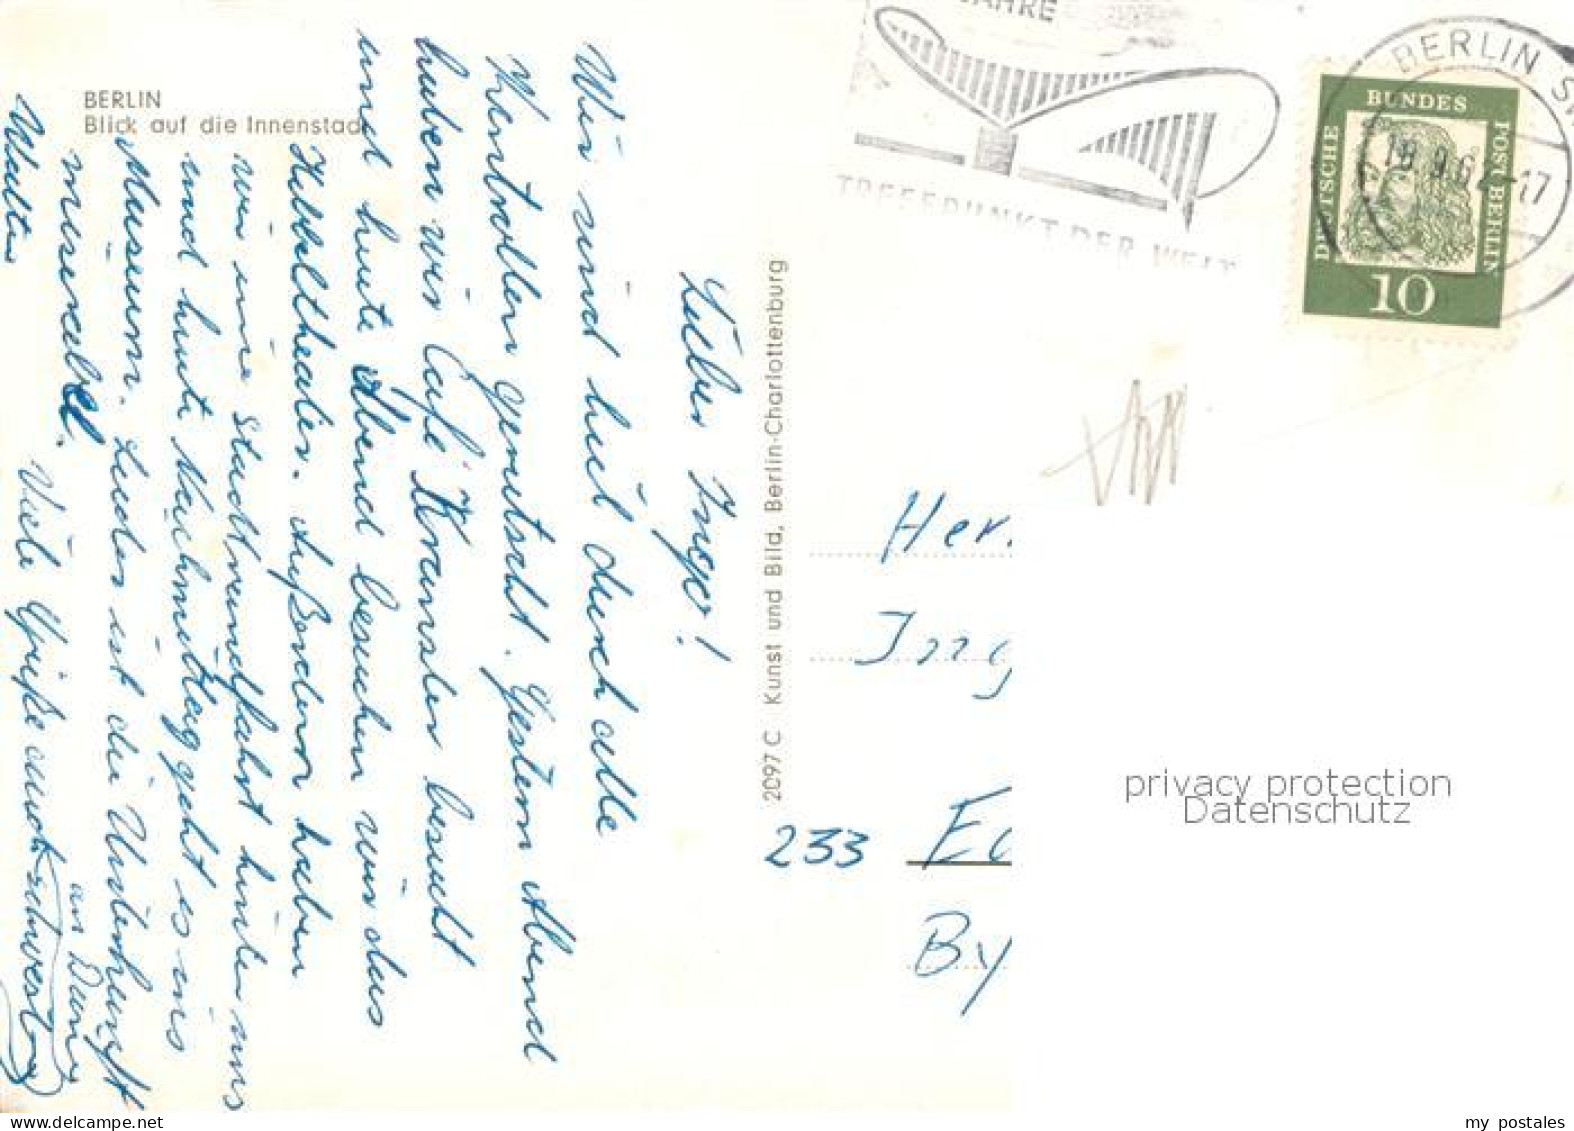 BERLIN
Blick auf die Innenstadt
Lieber Ingo!
Wir sind heil durch alle
Kontrollen gerutscht. Gestern Abend
haben wir Café Kranzler besucht
und heute Abend besuchen wir das
Hebbeltheater. Außerdem haben
wir eine Stadtrundfahrt hinter uns
und heute Nachmittag geht es ins
Museum. Leider ist die Unterkunft
miserabel.
Viele Grüße auch
an Deine
Mutter
2097 C Kunst und Bild, Berlin-Charlottenburg
JAHRE
TREFFPUNKT DER WELT
BERLIN SW
18 9 6 -17
DEUTSCHE
BUNDES
POST BERLIN
10
Her
Ing
233
By
privacy protection
Datenschutz
my postales